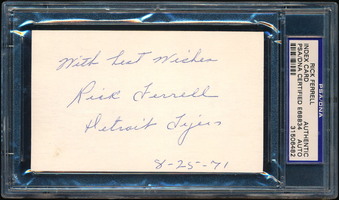 With Best Wishes
Rick Ferrell
Detroit Tigers
8-25-71
PSA/DNA
RICK FERRELL
INDEX CARD
PSA/DNA CERTIFIED E68834
AUTHENTIC
AUTO
31506462